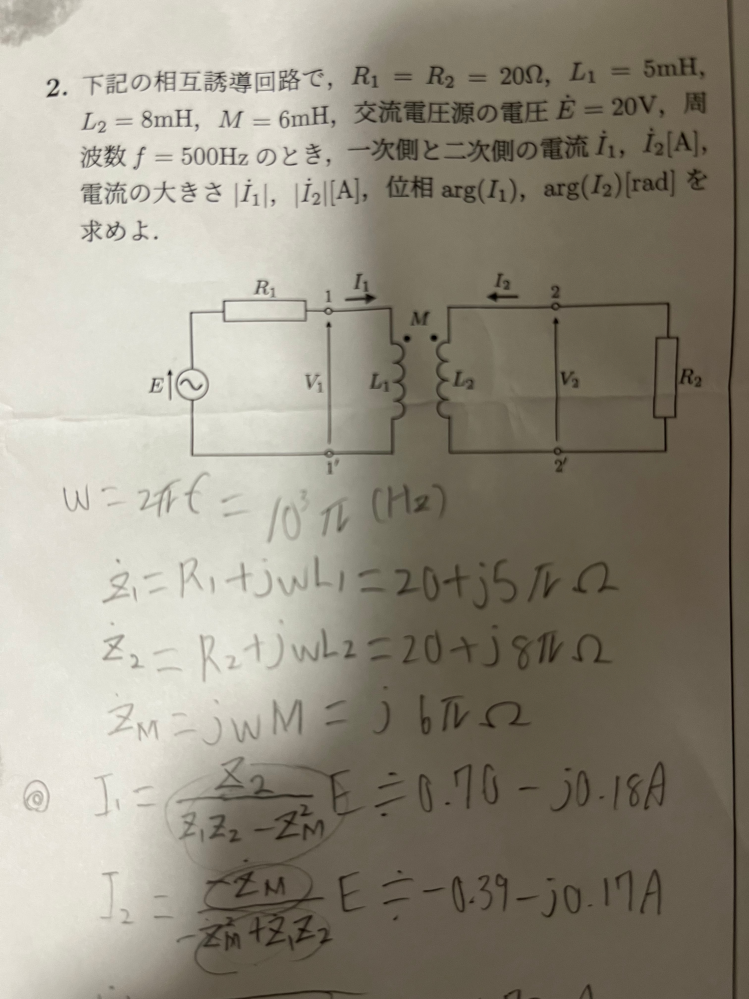 2. 下記の相互誘導回路で, R₁ = R₂ = 20Ω, L₁ = 5mH,
L₂ = 8mH, M = 6mH, 交流電圧源の電圧 Ė = 20V, 周
波数 f = 500Hz のとき, 一次側と二次側の電流 İ₁, İ₂[A],
電流の大きさ |İ₁|, |İ₂|[A], 位相 arg(I₁), arg(I₂)[rad] を
求めよ.
R₁ 1 I₁ I₂ 2
M
E V₁ L₁ L₂ V₂ R₂
1' 2'
ω = 2πf = 10³π (Hz)
ż₁ = R₁ + jωL₁ = 20 + j5π Ω
ż₂ = R₂ + jωL₂ = 20 + j8π Ω
ż_M = jωM = j6π Ω
◎ I₁ = Z₂ / (Z₁Z₂ − Z_M²) E ≒ 0.70 − j0.18A
I₂ = −Ż_M / (−Z_M² + Z₁Z₂) E ≒ −0.39 − j0.17A